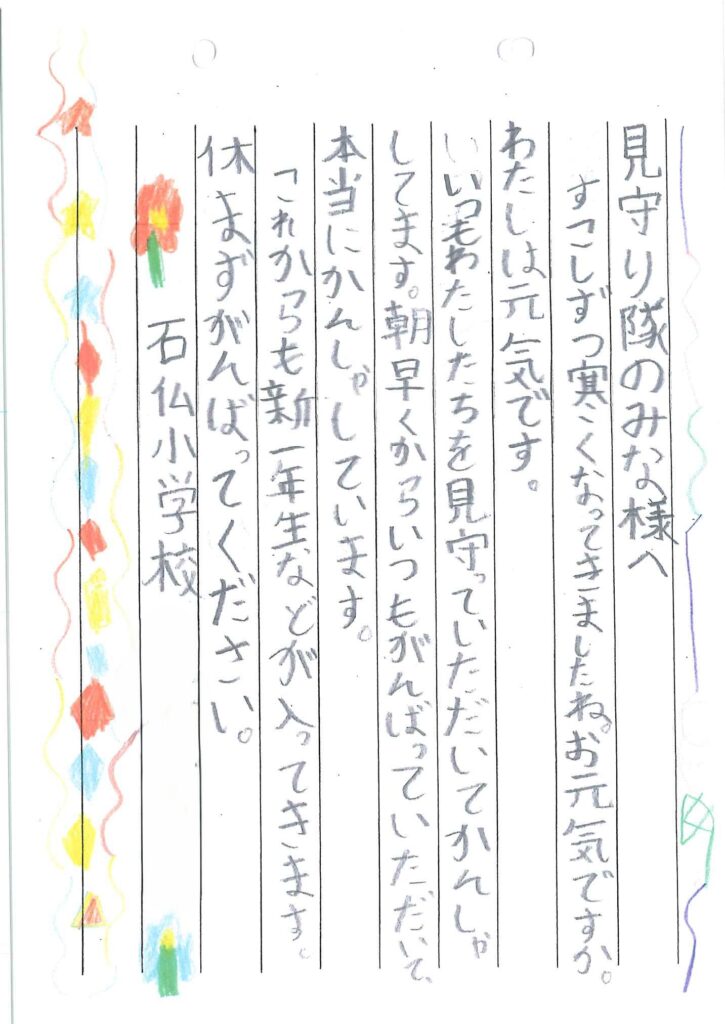 見守り隊のみな様へ
すこしずつ寒くなってきましたね。お元気ですか。
わたしは元気です。
いつもわたしたちを見守っていただいてかんしゃ
してます。朝早くからいつもがんばっていただいて、
本当にかんしゃしています。
これからも新一年生などが入ってきます。
休まずがんばってください。
石仏小学校